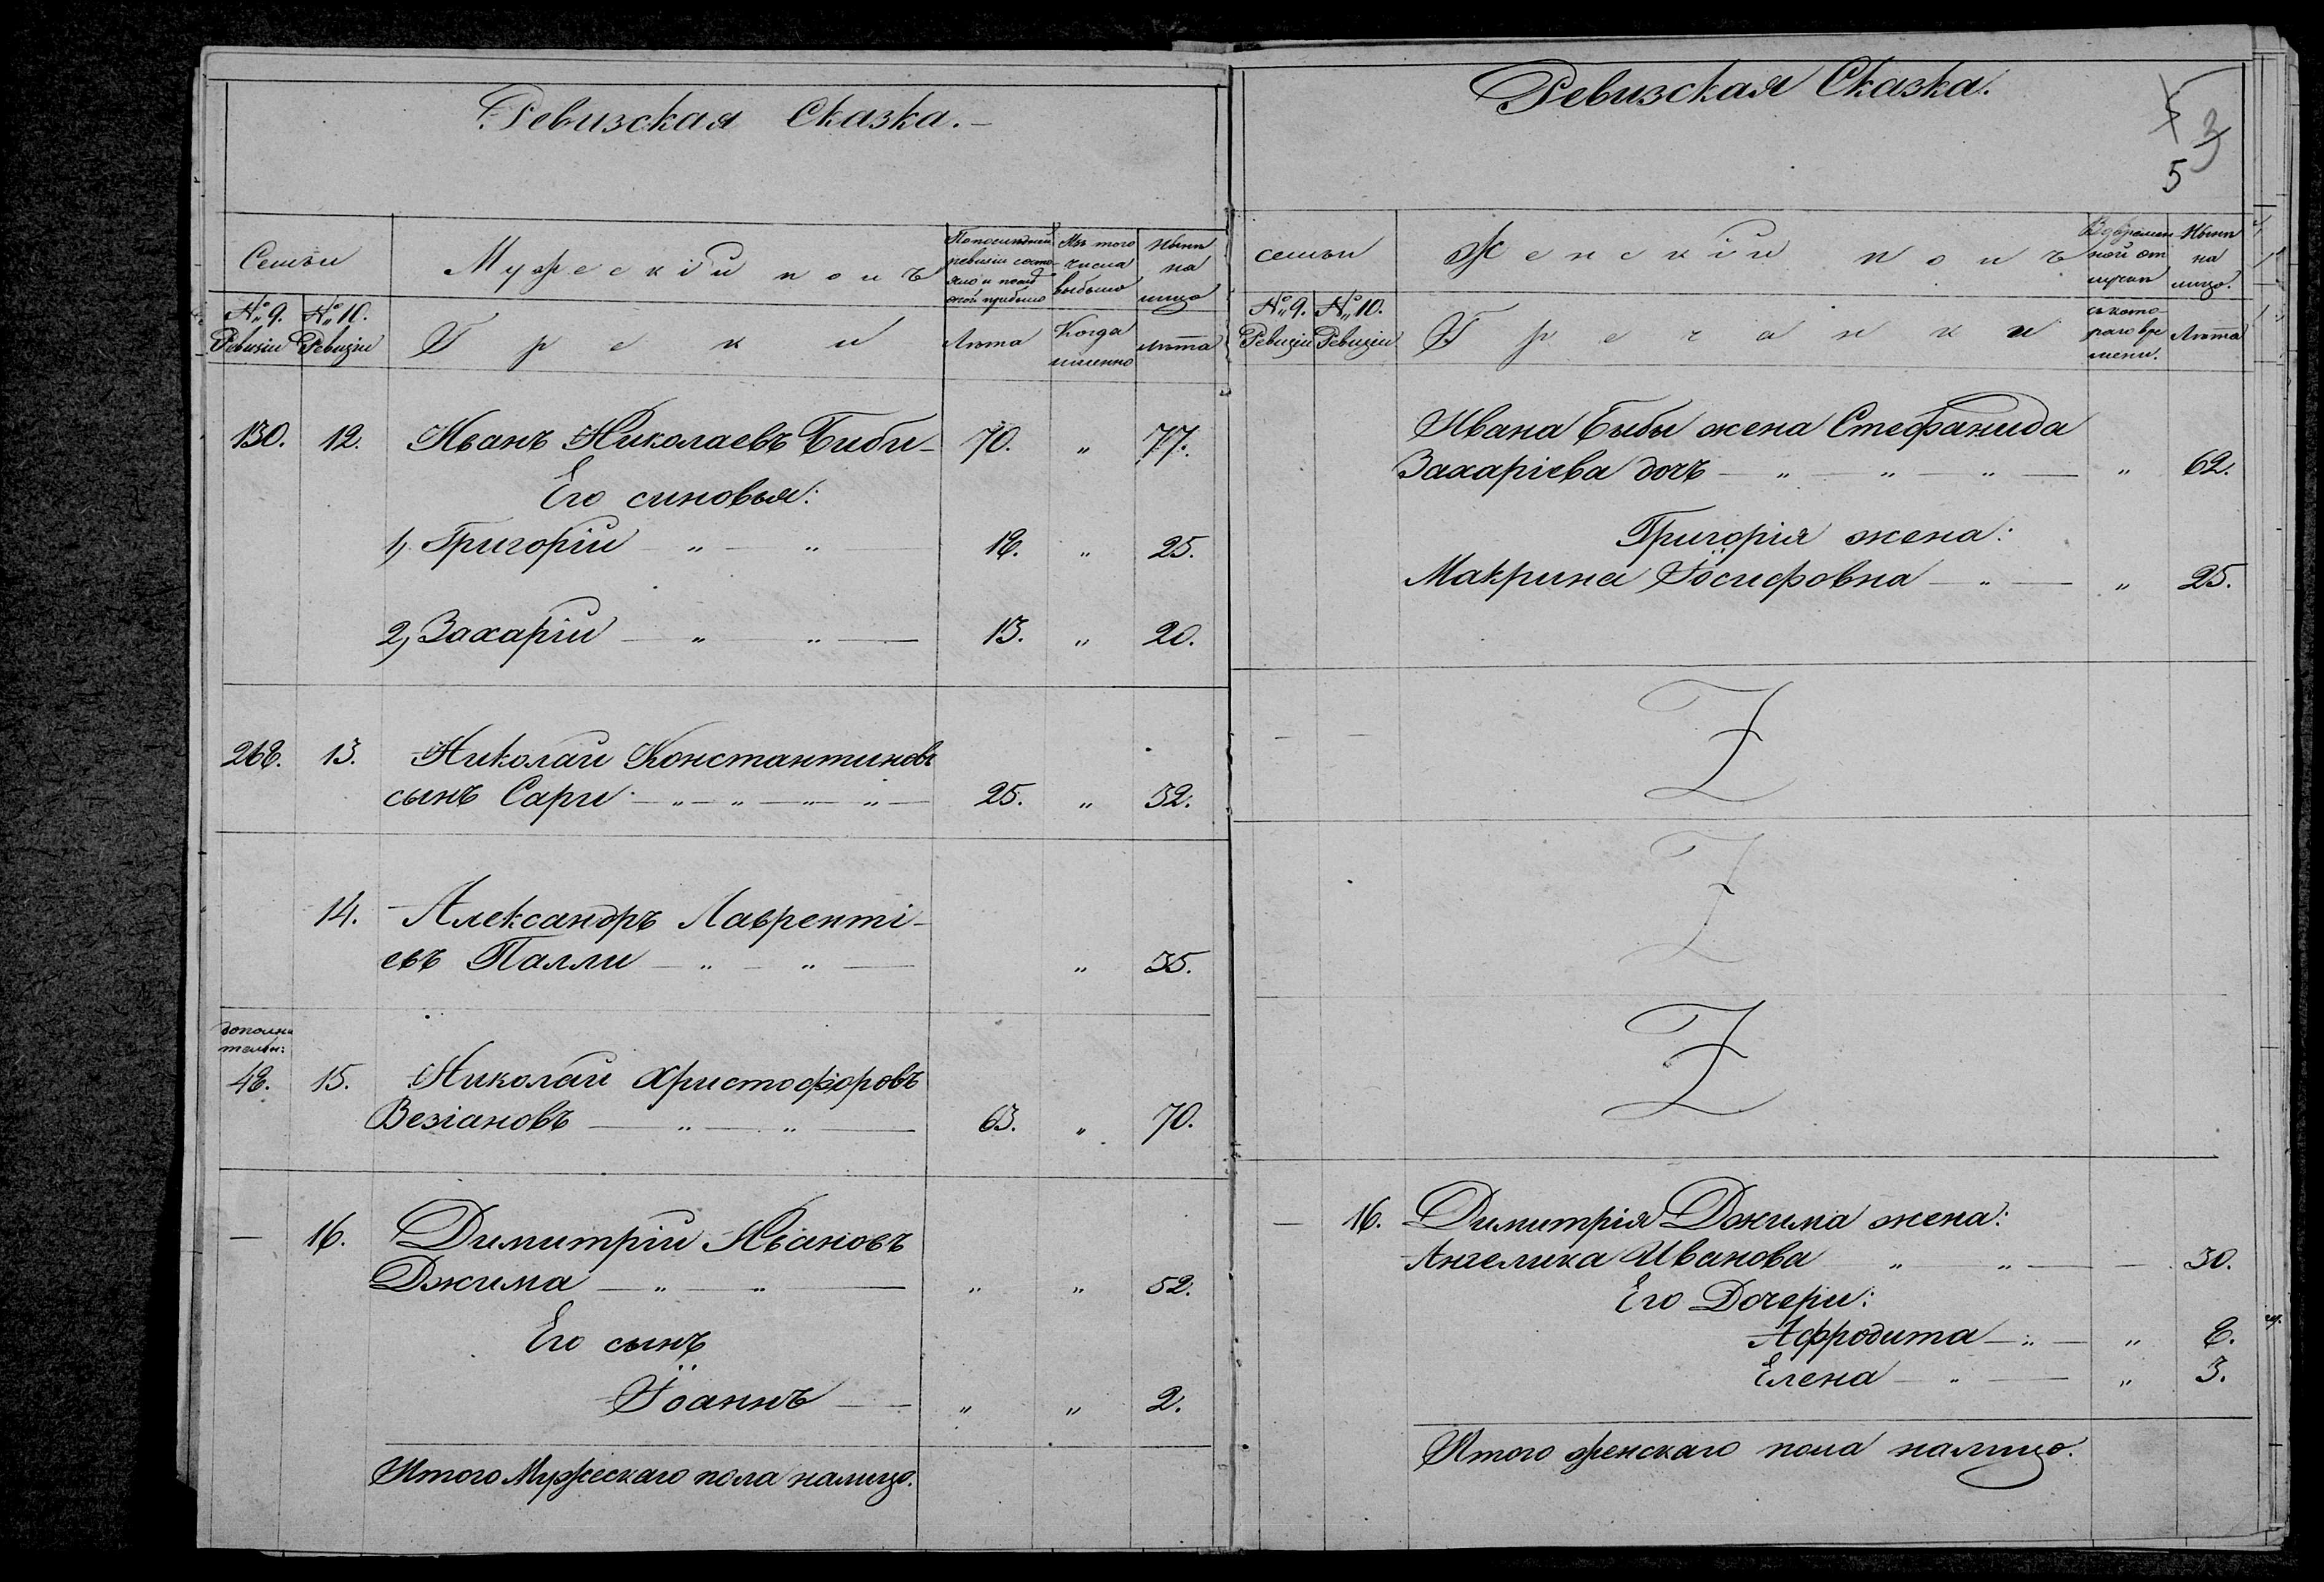 Ревизская Сказка.
Семьи
Мужескій полъ
По последней ревизіи состояло и после оной прибыло
Изъ того числа выбыло
Нынѣ на лицо
№ 9. Ревизіи
№ 10. Ревизіи
Греки
Лѣта
Когда именно
лѣта
130. 12. Иванъ Николаевъ Биби 70. " 77.
Его синовья:
1, Григорій — " — " — 18. " 25.
2, Захарій — " " — 13. " 20.
268. 13. Николай Константиновъ
сынъ Сари — " — " — " — " — 25. " 32.
14. Александръ Лавренті-
евъ Палли — " — " — " 35.
дополни
тельн:
48. 15. Николай Христофоровъ
Везіановъ — " — " — 63. " 70.
— 16. Димитрій Ивановъ
Джима — " — " — " " 52.
Его сынъ
Іоаннъ — " " 2.
Итого Мужескаго пола налицо.
Ревизская Сказка.
3
5
семьи
Женскій полъ
В временной отлучки
Нынѣ на лицо.
№ 9. Ревизіи
№ 10. Ревизіи
Гречанки
съ котораго времени.
Лѣта
Ивана Бибы жена Стефанида
Захаріева дочъ — " — " — " — " 62.
Григорія жена:
Макрина Іосифовна — " — " 25.
Z
Z
Z
— 16. Димитрія Джима жена:
Ангелика Иванова " " — — 30.
Его Дочери:
Афродита — " — " 8.
Елена — " — " 3.
Итого женскаго пола налицо.